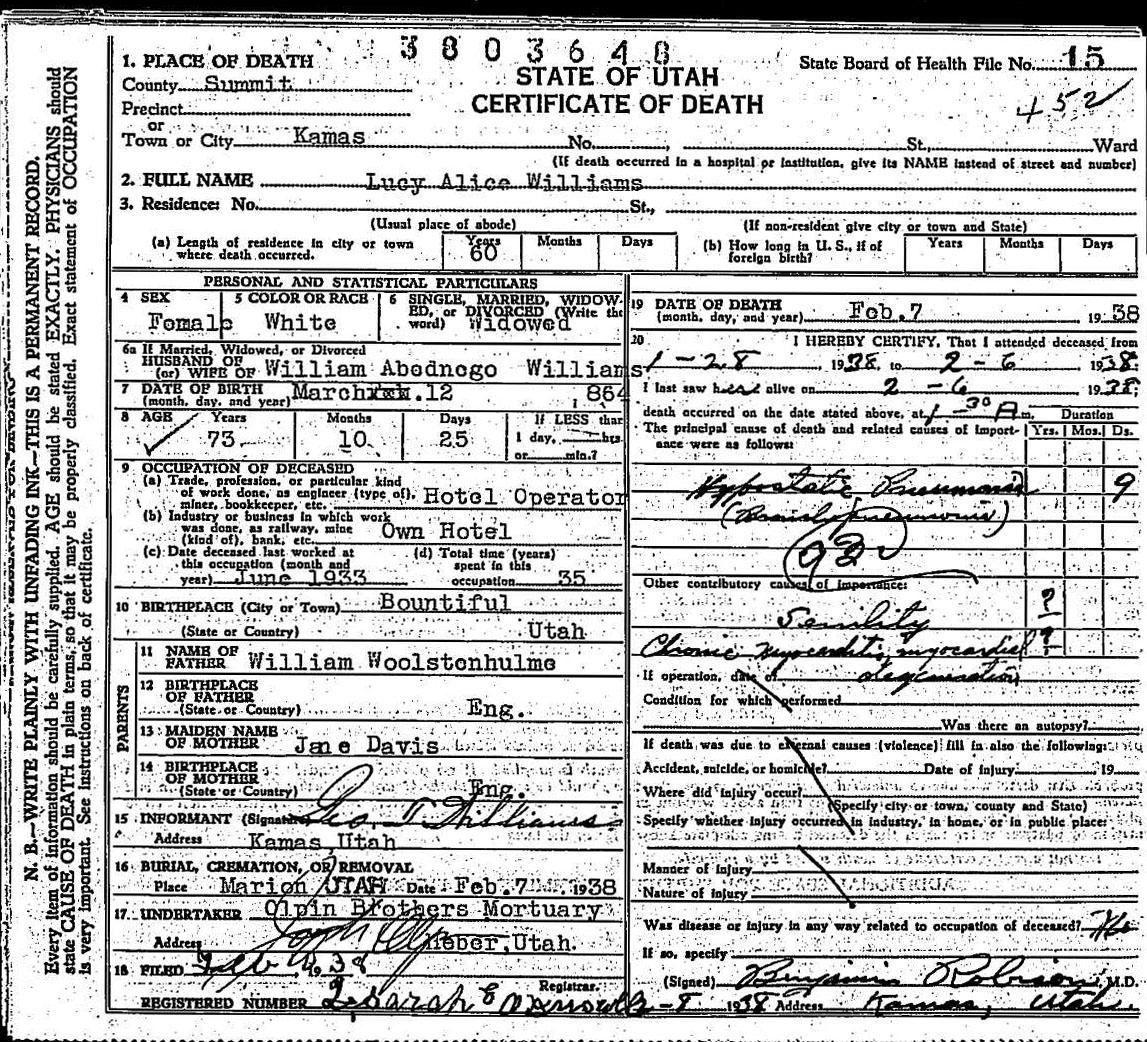 N. B.—WRITE PLAINLY WITH UNFADING INK—THIS IS A PERMANENT RECORD.
Every item of information should be carefully supplied. AGE should be stated EXACTLY. PHYSICIANS should
state CAUSE OF DEATH in plain terms, so that it may be properly classified. Exact statement of OCCUPATION
is very important. See instructions on back of certificate.
3803648
1. PLACE OF DEATH
STATE OF UTAH
State Board of Health File No. 15
County Summit
CERTIFICATE OF DEATH
452
Precinct
or
Town or City Kamas No. , St., Ward
(If death occurred in a hospital or institution, give its NAME instead of street and number)
2. FULL NAME Lucy Alice Williams
3. Residence: No. St.,
(Usual place of abode) (If non-resident give city or town and State)
(a) Length of residence in city or town where death occurred. Years 60 Months Days
(b) How long in U. S., if of foreign birth? Years Months Days
PERSONAL AND STATISTICAL PARTICULARS
4 SEX Female
5 COLOR OR RACE White
6 SINGLE, MARRIED, WIDOWED, or DIVORCED (Write the word) Widowed
6a If Married, Widowed, or Divorced
HUSBAND OF
(or) WIFE OF William Abednego Williams
7 DATE OF BIRTH
(month, day, and year) March xxx.12 1 864
8 AGE Years 73 Months 10 Days 25 If LESS than
1 day, hrs.
or min.?
9 OCCUPATION OF DECEASED
(a) Trade, profession, or particular kind
of work done, as engineer (type of),
miner, bookkeeper, etc. Hotel Operator
(b) Industry or business in which work
was done, as railway, mine
(kind of), bank, etc. Own Hotel
(c) Date deceased last worked at
this occupation (month and
year) June 1933
(d) Total time (years)
spent in this
occupation 35
10 BIRTHPLACE (City or Town) Bountiful
(State or Country) Utah
PARENTS
11 NAME OF
FATHER William Woolstenhulme
12 BIRTHPLACE
OF FATHER
(State or Country) Eng.
13 MAIDEN NAME
OF MOTHER Jane Davis
14 BIRTHPLACE
OF MOTHER
(State or Country) Eng.
15 INFORMANT (Signature) Geo. Williams
Address Kamas, Utah
16 BURIAL, CREMATION, OR REMOVAL
Place Marion UTAH Date Feb.7 1938
17 UNDERTAKER Olpin Brothers Mortuary
Address Heber, Utah.
18 FILED Feb 1938
Registrar.
REGISTERED NUMBER 2 Sarah E 8
19 DATE OF DEATH
(month, day, and year) Feb.7 19 38
20 I HEREBY CERTIFY, That I attended deceased from
1-28, 1938, to 2-6 1938;
I last saw her alive on 2-6 1938;
death occurred on the date stated above, at 1 30 A m. Duration
The principal cause of death and related causes of importance were as follows: Yrs. Mos. Ds.
Hypostatic Pneumonia 9
pneumonia)
Other contributory causes of importance:
Senility ?
Chronic myocarditis, myocardial ?
degeneration
If operation, date of
Condition for which performed
Was there an autopsy?
If death was due to external causes (violence) fill in also the following:
Accident, suicide, or homicide? Date of injury 19
Where did injury occur?
(Specify city or town, county and State)
Specify whether injury occurred in industry, in home, or in public place:
Manner of injury
Nature of injury
Was disease or injury in any way related to occupation of deceased? No
If so, specify
(Signed) Benjamin Robison, M.D.
1938 Address Kamas, Utah.